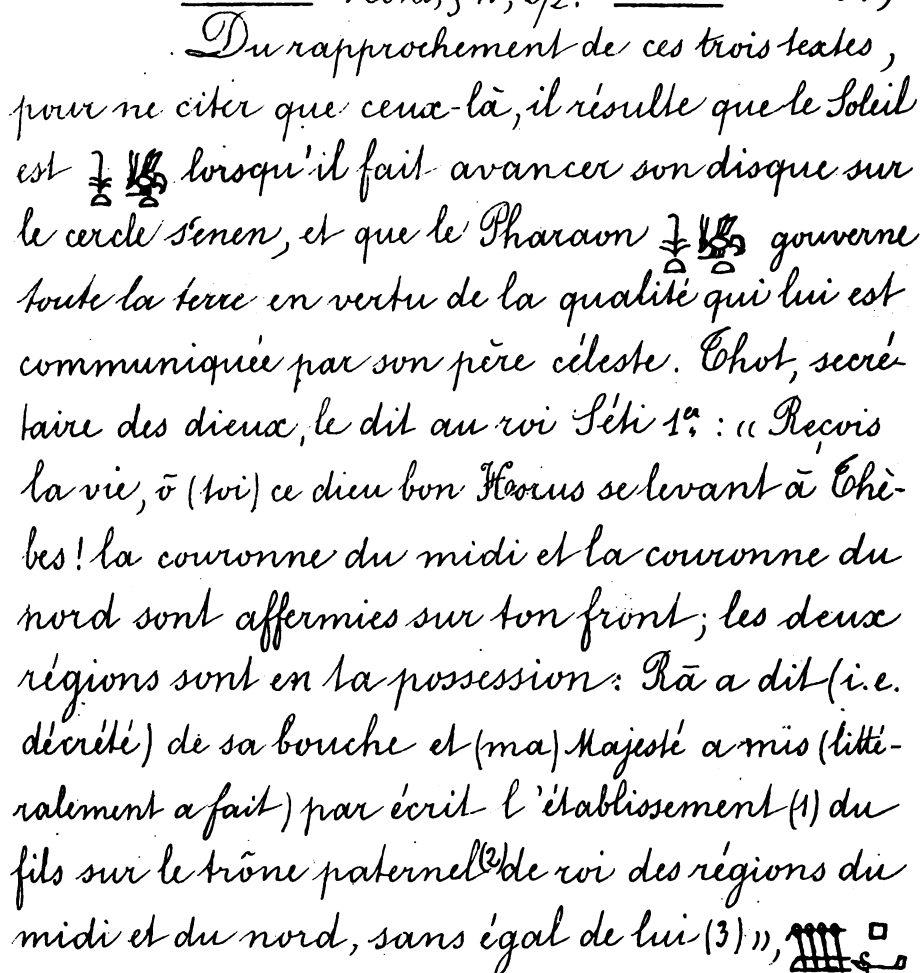 Du rapprochement de ces trois textes,
pour ne citer que ceux-là, il résulte que le Soleil
est 𓇓𓏏𓆤𓏏 lorsqu'il fait avancer son disque sur
le cercle s'enen, et que le Pharaon 𓇓𓏏𓆤𓏏 gouverne
toute la terre en vertu de la qualité qui lui est
communiquée par son père céleste. Thot, secré-
taire des dieux, le dit au roi Séti 1er : « Reçois
la vie, ō (toi) ce dieu bon Horus se levant à Thè-
bes ! la couronne du midi et la couronne du
nord sont affermies sur ton front ; les deux
régions sont en ta possession : Rā a dit (i.e.
décrété) de sa bouche et (ma) Majesté a mis (litté-
ralement a fait) par écrit l'établissement (1) du
fils sur le trône paternel (2) de roi des régions du
midi et du nord, sans égal de lui (3) »,